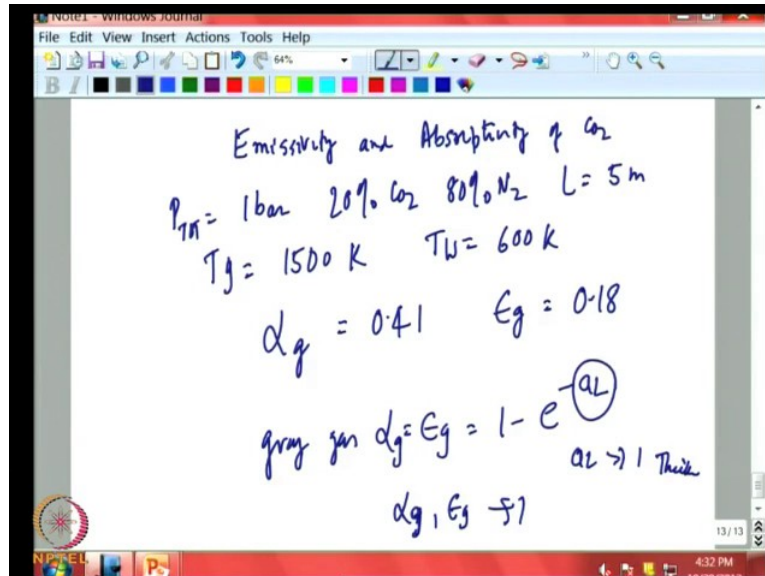 Note1 - Windows Journal
File Edit View Insert Actions Tools Help
64%
Emissivity and Absorptivity of CO2
PTot = 1 bar 20% CO2 80% N2 L = 5 m
Tg = 1500 K Tw = 600 K
αg = 0.41 ϵg = 0.18
gray gas αg = ϵg = 1 - e^-aL
aL >> 1 Thick
αg, ϵg → 1
13/13
NPTEL
4:32 PM